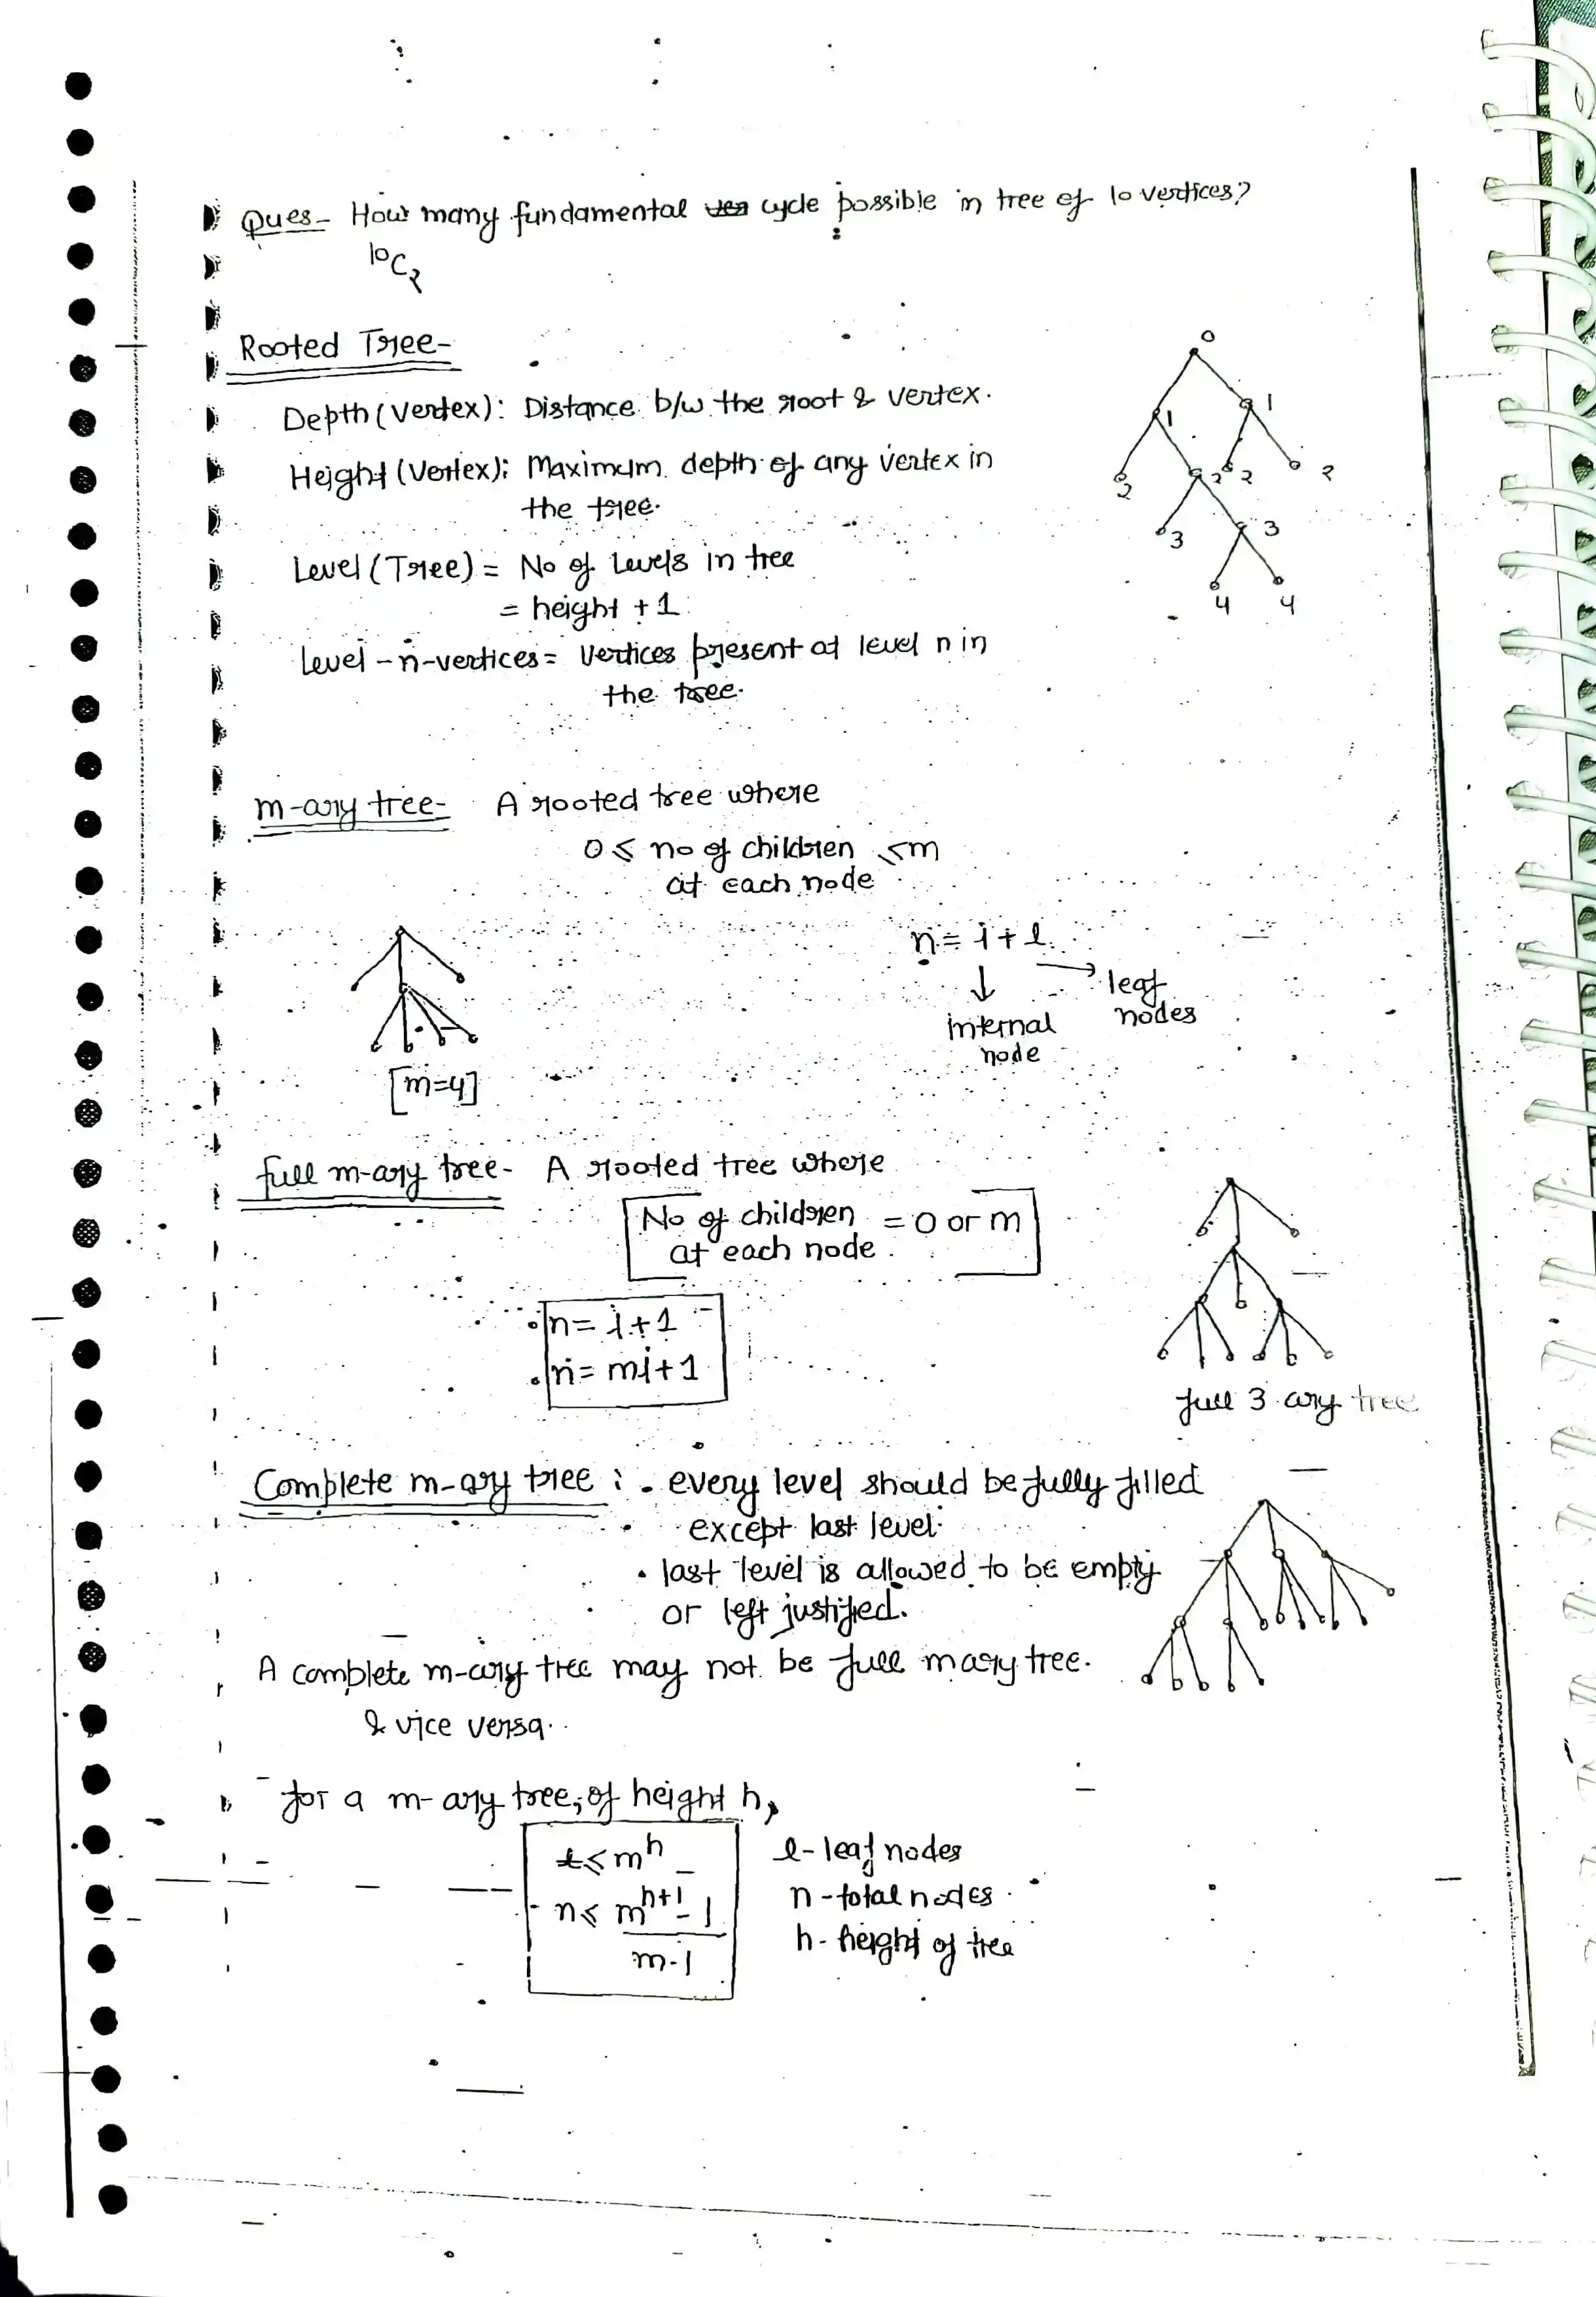 Ques- How many fundamental cycle possible in tree of 10 vertices?
¹⁰C₂
Rooted Tree-
0
Depth (Vertex): Distance b/w the root & vertex.
1 1
Height (Vertex): Maximum depth of any vertex in
the tree.
2 2 2 2
3 3
Level (Tree) = No of Levels in tree
= height + 1
4 4
Level - n - vertices = Vertices present at level n in
the tree.
m-ary tree- A rooted tree where
0 ≤ no of children ≤ m
at each node
n = i + l
leaf
nodes
internal
node
[m=4]
full m-ary tree- A rooted tree where
No of children = 0 or m
at each node
n = i + 1
n = mi + 1
full 3 ary tree
Complete m-ary tree : • every level should be fully filled
except last level.
• last level is allowed to be empty
or left justified.
A complete m-ary tree may not be full mary tree.
& vice versa.
for a m-ary tree, of height h,
l ≤ m^h
n ≤ m^(h+1) - 1
m-1
l - leaf nodes
n - total nodes
h - height of tree